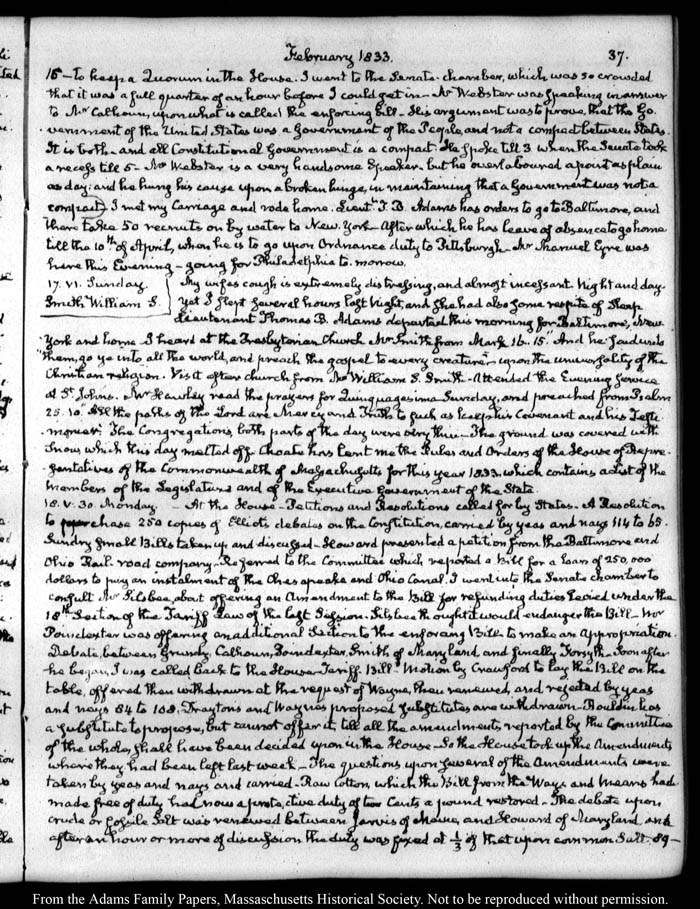 February 1833. 37.
16 – to keep a Quorum in the House. I went to the Senate-chamber, which was so crowded
that it was a full quarter of an hour before I could get in – Mr Webster was speaking in answer
to Mr Calhoun, upon what is called the enforcing bill – His argument was to prove, that the Go-
vernment of the United States was a Government of the People, and not a compact between States.
It is both – and all Constitutional Government is a compact. He spoke till 3 when the Senate took
a recess till 5 – Mr Webster is a very handsome Speaker – but he overlaboured a point as plain
as day: and he hung his cause upon a broken hinge, in maintaining that a Government was not a
compact. I met my Carriage and rode home. Lieutt. T. B. Adams has orders to go to Baltimore, and
there take 50 recruits on by water to New-York – After which he has leave of absence to go home
till the 10th of April, when he is to go upon Ordnance duty to Pittsburgh – Mr Manuel Eyre was
here this Evening – going for Philadelphia to-morrow.
17. VI. Sunday. My wife's cough is extremely distressing, and almost incessant Night and day –
Smith, William S. Yet I slept several hours last Night, and she had also some respite of sleep
Lieutenant Thomas B. Adams departed this morning for Baltimore, New-
York and home. I heard at the Presbyterian Church Mr Smith from Mark 16. 15. "And he said unto
"them, go ye into all the world, and preach the gospel to every creature" – upon the universality of the
Christian religion. Visit after church from Mr William S. Smith – Attended the Evening Service
at St. Johns. Mr Hawley read the prayers for Quinquagesima Sunday, and preached from Psalm
25. 10. All the paths of the Lord are Mercy and Truth to such as keep his Covenant and his Testi-
monies. The Congregations, both parts of the day were very thin – The ground was covered with
snow, which this day melted off. Choate has lent me the Rules and Orders of the House of Repre-
sentatives of the Commonwealth of Massachusetts for this year 1833. which contains a list of the
members of the Legislature and of the Executive Government of the State.
18. V. 30. Monday – At the House – Petitions and Resolutions called for by States. A Resolution
to purchase 250 copies of Elliot's debates on the Constitution, carried by yeas and nays 114 to 68.
Sundry small Bills taken up and discussed – Howard presented a petition from the Baltimore and
Ohio Rail-road company – Referred to the Committee which reported a Bill for a loan of 250,000
dollars to pay an instalment of the Chesapeake and Ohio Canal. I went into the Senate chamber to
consult Mr Silsbee, about offering an Amendment to the Bill for refunding duties levied under the
18th Section of the Tariff Law of the last Session. Silsbee thought it would endanger the Bill – Mr
Poindexter was offering an additional Section to the enforcing Bill – to make an Appropriation.
Debate, between Grundy, Calhoun, Poindexter, Smith of Maryland and finally Forsyth – Soon after
he began, I was called back to the House – Tariff Bill – Motion by Crawford to lay the Bill on the
table, offered then withdrawn at the request of Wayne, then renewed, and rejected by yeas
and nays 84 to 108. Drayton's and Wayne's proposed substitutes are withdrawn – Bouldin has
a substitute to propose, but cannot offer it, till all the amendments reported by the Committee
of the whole, shall have been decided upon in the House – So the House took up the Amendments
where they had been left last week – The questions upon several of the Amendments were
taken by yeas and nays and carried – Raw Cotton, which the Bill from the Ways and Means had
made free of duty had now a protective duty of two Cents a pound restored – The debate upon
crude or fossile Salt was renewed between Jarvis of Maine, and Howard of Maryland and
after an hour or more of discussion the duty was fixed at 1/3 of that upon common Salt. 89 –
From the Adams Family Papers, Massachusetts Historical Society. Not to be reproduced without permission.